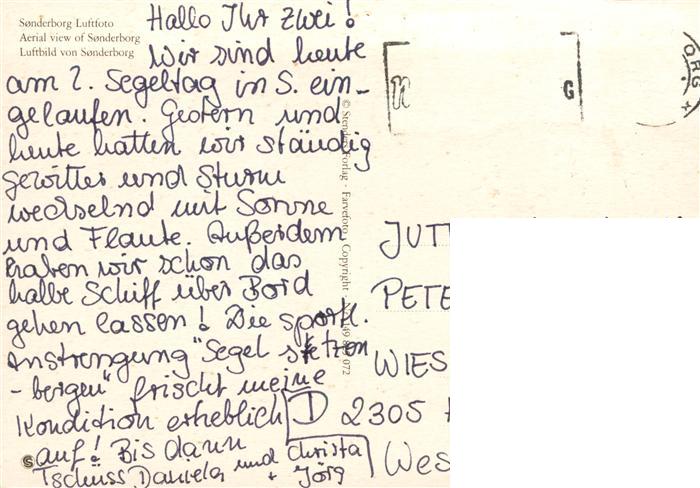 Sønderborg Luftfoto
Aerial view of Sønderborg
Luftbild von Sønderborg
Hallo Ihr zwei!
Wir sind heute
am 2. Segeltag in S. ein-
gelaufen. Gestern und
heute hatten wir ständig
Gewitter und Sturm
wechselnd mit Sonne
und Flaute. Außerdem
haben wir schon das
halbe Schiff über Bord
gehen lassen! Die sportl.
Anstrengung "Segel setzen
-bergen" frischt meine
Kondition erheblich
auf! Bis dann
Tschüss Daniela und Christa
+ Jörg
© Stenders Forlag · Farvefoto · Copyright
072
JUT
PETE
WIES
D 2305
Wes
G
ORG